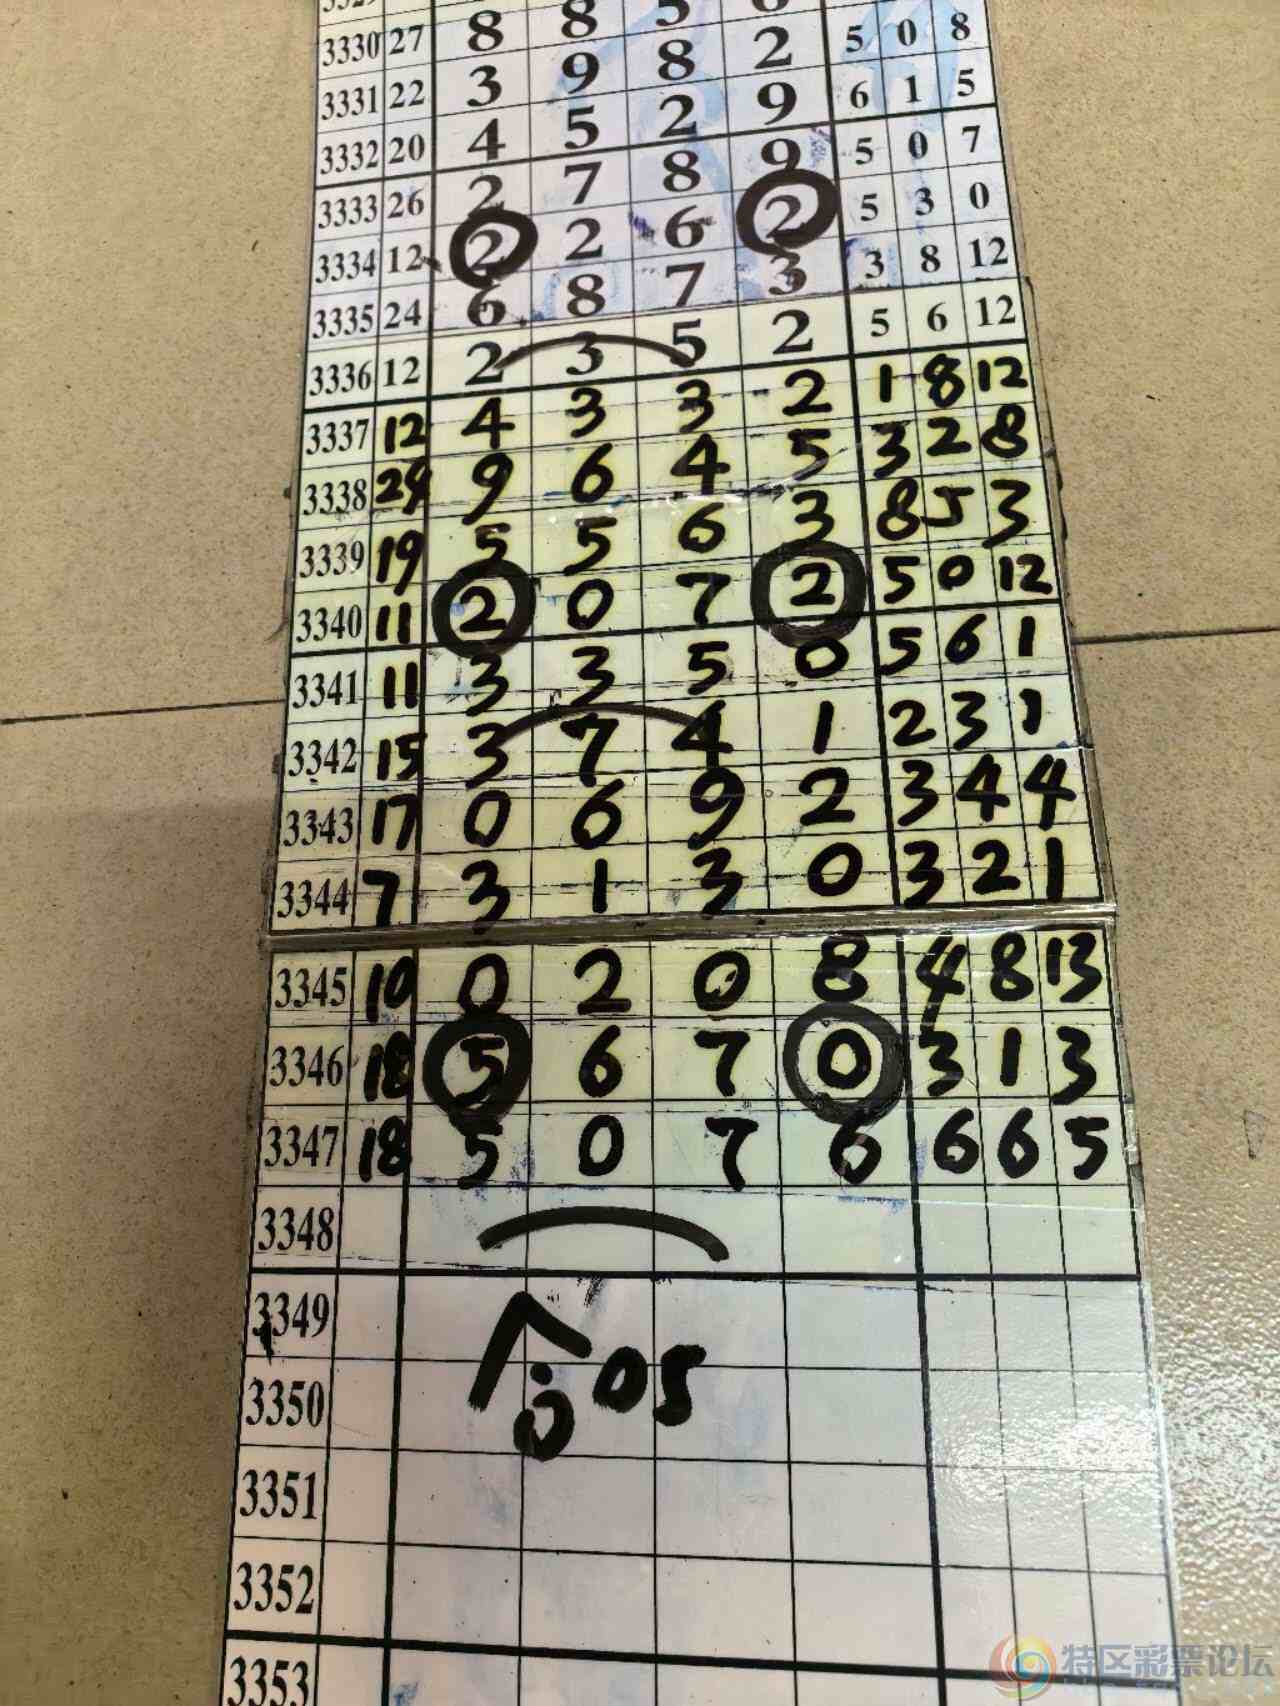 3330 27 8 8 5 6
3331 22 3 9 8 2 5 0 8
3332 20 4 5 2 9 6 1 5
3333 26 2 7 8 9 5 0 7
3334 12 2 2 6 2 5 3 0
3335 24 6 8 7 3 3 8 12
3336 12 2 3 5 2 5 6 12
3337 12 4 3 3 2 1 8 12
3338 24 9 6 4 5 3 2 8
3339 19 5 5 6 3 8 5 3
3340 11 2 0 7 2 5 0 12
3341 11 3 3 5 0 5 6 1
3342 15 3 7 4 1 2 3 1
3343 17 0 6 9 2 3 4 4
3344 7 3 1 3 0 3 2 1
3345 10 0 2 0 8 4 8 13
3346 18 5 6 7 0 3 1 3
3347 18 5 0 7 6 6 6 5
3348
3349
合05
3350
3351
3352
3353
特区彩票论坛